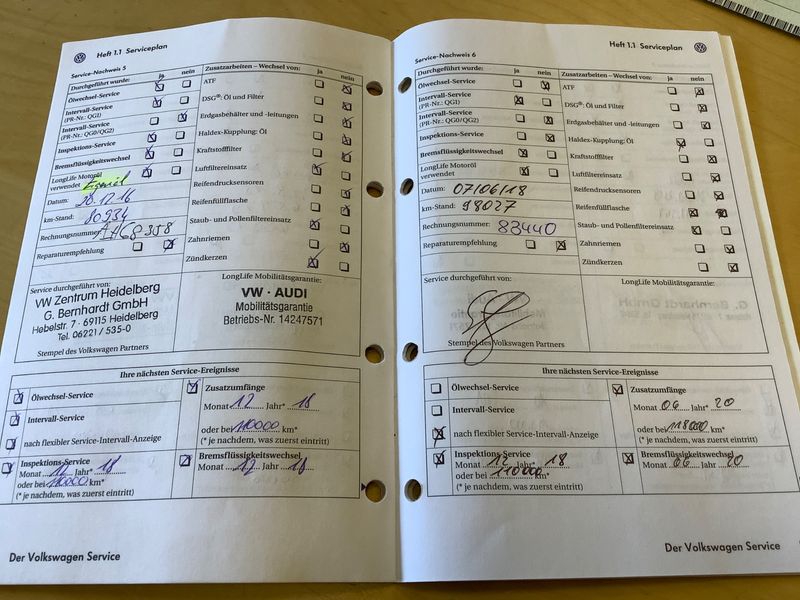 Heft 1.1 Serviceplan
Service-Nachweis 5
Durchgeführt wurde: ja nein
Ölwechsel-Service
Intervall-Service
(PR-Nr.: QG1)
Intervall-Service
(PR-Nr.: QG0/QG2)
Inspektions-Service
Bremsflüssigkeitswechsel
LongLife Motoröl
verwendet
Datum: 20.12.16
km-Stand: 80934
Rechnungsnummer:
Reparaturempfehlung
Zusatzarbeiten – Wechsel von: ja nein
ATF
DSG®: Öl und Filter
Erdgasbehälter und -leitungen
Haldex-Kupplung: Öl
Kraftstofffilter
Luftfiltereinsatz
Reifendrucksensoren
Reifenfüllflasche
Staub- und Pollenfiltereinsatz
Zahnriemen
Zündkerzen
Service durchgeführt von:
VW Zentrum Heidelberg
G. Bernhardt GmbH
Hebelstr. 7 · 69115 Heidelberg
Tel. 06221 / 535-0
Stempel des Volkswagen Partners
LongLife Mobilitätsgarantie:
VW · AUDI
Mobilitätsgarantie
Betriebs-Nr. 14247571
Ihre nächsten Service-Ereignisse
Ölwechsel-Service
Intervall-Service
nach flexibler Service-Intervall-Anzeige
Inspektions-Service
Monat 12 Jahr* 18
oder bei 110000 km*
(* je nachdem, was zuerst eintritt)
Zusatzumfänge
Monat 12 Jahr* 18
oder bei 110000 km*
(* je nachdem, was zuerst eintritt)
Bremsflüssigkeitswechsel
Monat 12 Jahr 18
Der Volkswagen Service
Heft 1.1 Serviceplan
Service-Nachweis 6
Durchgeführt wurde: ja nein
Ölwechsel-Service
Intervall-Service
(PR-Nr.: QG1)
Intervall-Service
(PR-Nr.: QG0/QG2)
Inspektions-Service
Bremsflüssigkeitswechsel
LongLife Motoröl
verwendet
Datum: 07106118
km-Stand: 98027
Rechnungsnummer: 83440
Reparaturempfehlung
Zusatzarbeiten – Wechsel von: ja nein
ATF
DSG®: Öl und Filter
Erdgasbehälter und -leitungen
Haldex-Kupplung: Öl
Kraftstofffilter
Luftfiltereinsatz
Reifendrucksensoren
Reifenfüllflasche
Staub- und Pollenfiltereinsatz
Zahnriemen
Zündkerzen
Service durchgeführt von:
Stempel des Volkswagen Partners
LongLife Mobilitätsgarantie:
Ihre nächsten Service-Ereignisse
Ölwechsel-Service
Intervall-Service
nach flexibler Service-Intervall-Anzeige
Inspektions-Service
Monat 12 Jahr* 18
oder bei 110000 km*
(* je nachdem, was zuerst eintritt)
Zusatzumfänge
Monat 06 Jahr* 20
oder bei 118000 km*
(* je nachdem, was zuerst eintritt)
Bremsflüssigkeitswechsel
Monat 06 Jahr 20
Der Volkswagen Service